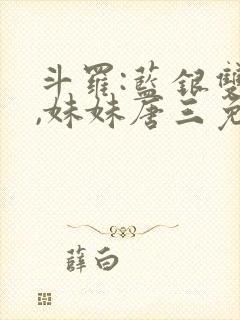 斗羅:藍銀雙
,妹妹唐三免
薛白